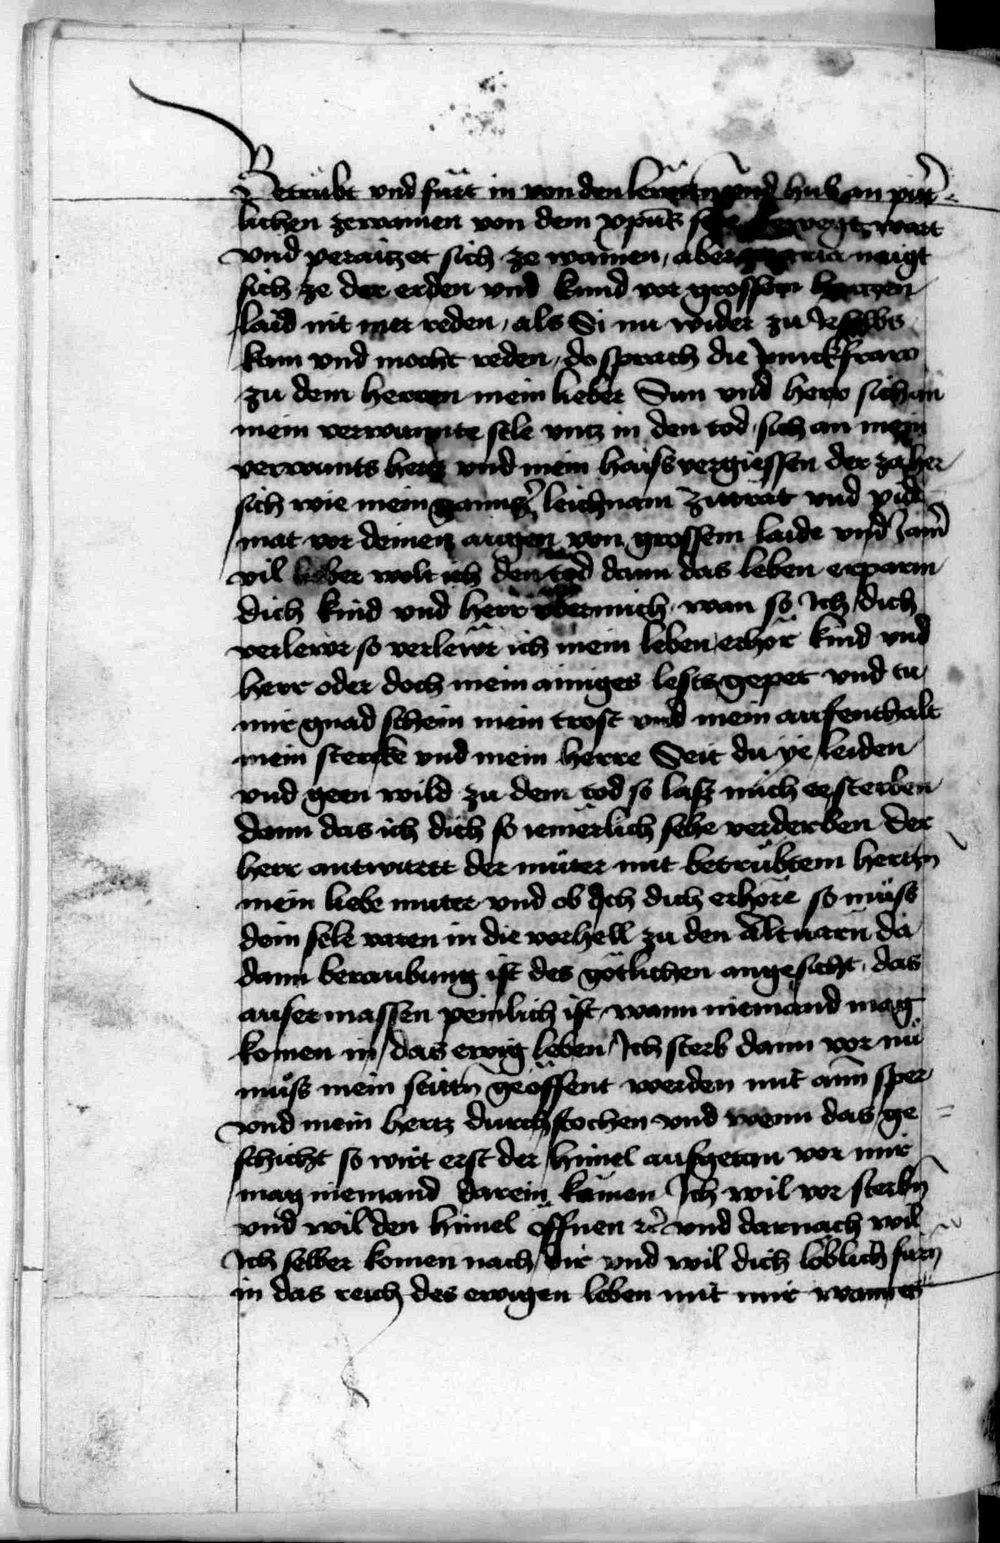 Betrübt vnd fürt in von den lewtn vnd hub an pitt=
lichen zewainen von dem xpus wegt wart
vnd peraitzet sich ze wainen, aber maria naigt
sich ze der erden vnd kund vor grossem hertzen
laid nit mer reden, als Si nu wider zu Ir selbs
kam vnd mocht reden, do sprach die Junckfraw
zu dem herren mein lieber Sun vnd herr sich an
mein verwunnte sele vntz in den tod, sich an mein
verwunts hertz vnd mein haiss vergiessen der zaher
sich wie mein gantzer leichnam zittrat vnd
mat vor deinen augen von grossem laide vnd Jamer
vil lieber wolt ich den tod dann das leben erparm
dich kind vnd herr vber mich, wan so Ich dich
verlewr so verlewr ich mein leben, erhör kind vnd
herr oder doch mein ainiges lests gepet vnd tu
mir gnad schein mein trost vnd mein aufenthalt
mein stercke vnd mein herre Seit du ye leiden
vnd geen wild zu dem tod so lass mich ee sterben
dann das ich dich so iemerlich sehe verderben Der
herr antwurtt der müter mit betrübtem hertzn
mein liebe muter vnd ob Ich dich erhöre so müss
dein sele varen in die vorhell zu den Altuätn da
dann beraubung ist des götlichen angesicht, das
ausermassen peinlich ist, wann niemand mag
komen in das ewig leben, Ich sterb dann vor nu
müss mein seittn geöffent werden mit aim sper
vnd mein hertz durchstochen vnd wenn das ge=
schicht so wirt erst der himel aufgetan vor mir
mag niemand darein kumen Ich wil vor sterbn
vnd wil den himel öffnen etc vnd darnach wil
Ich selber komen nach dir vnd wil dich löblich fürn
in das reich des ewigen leben mit mir